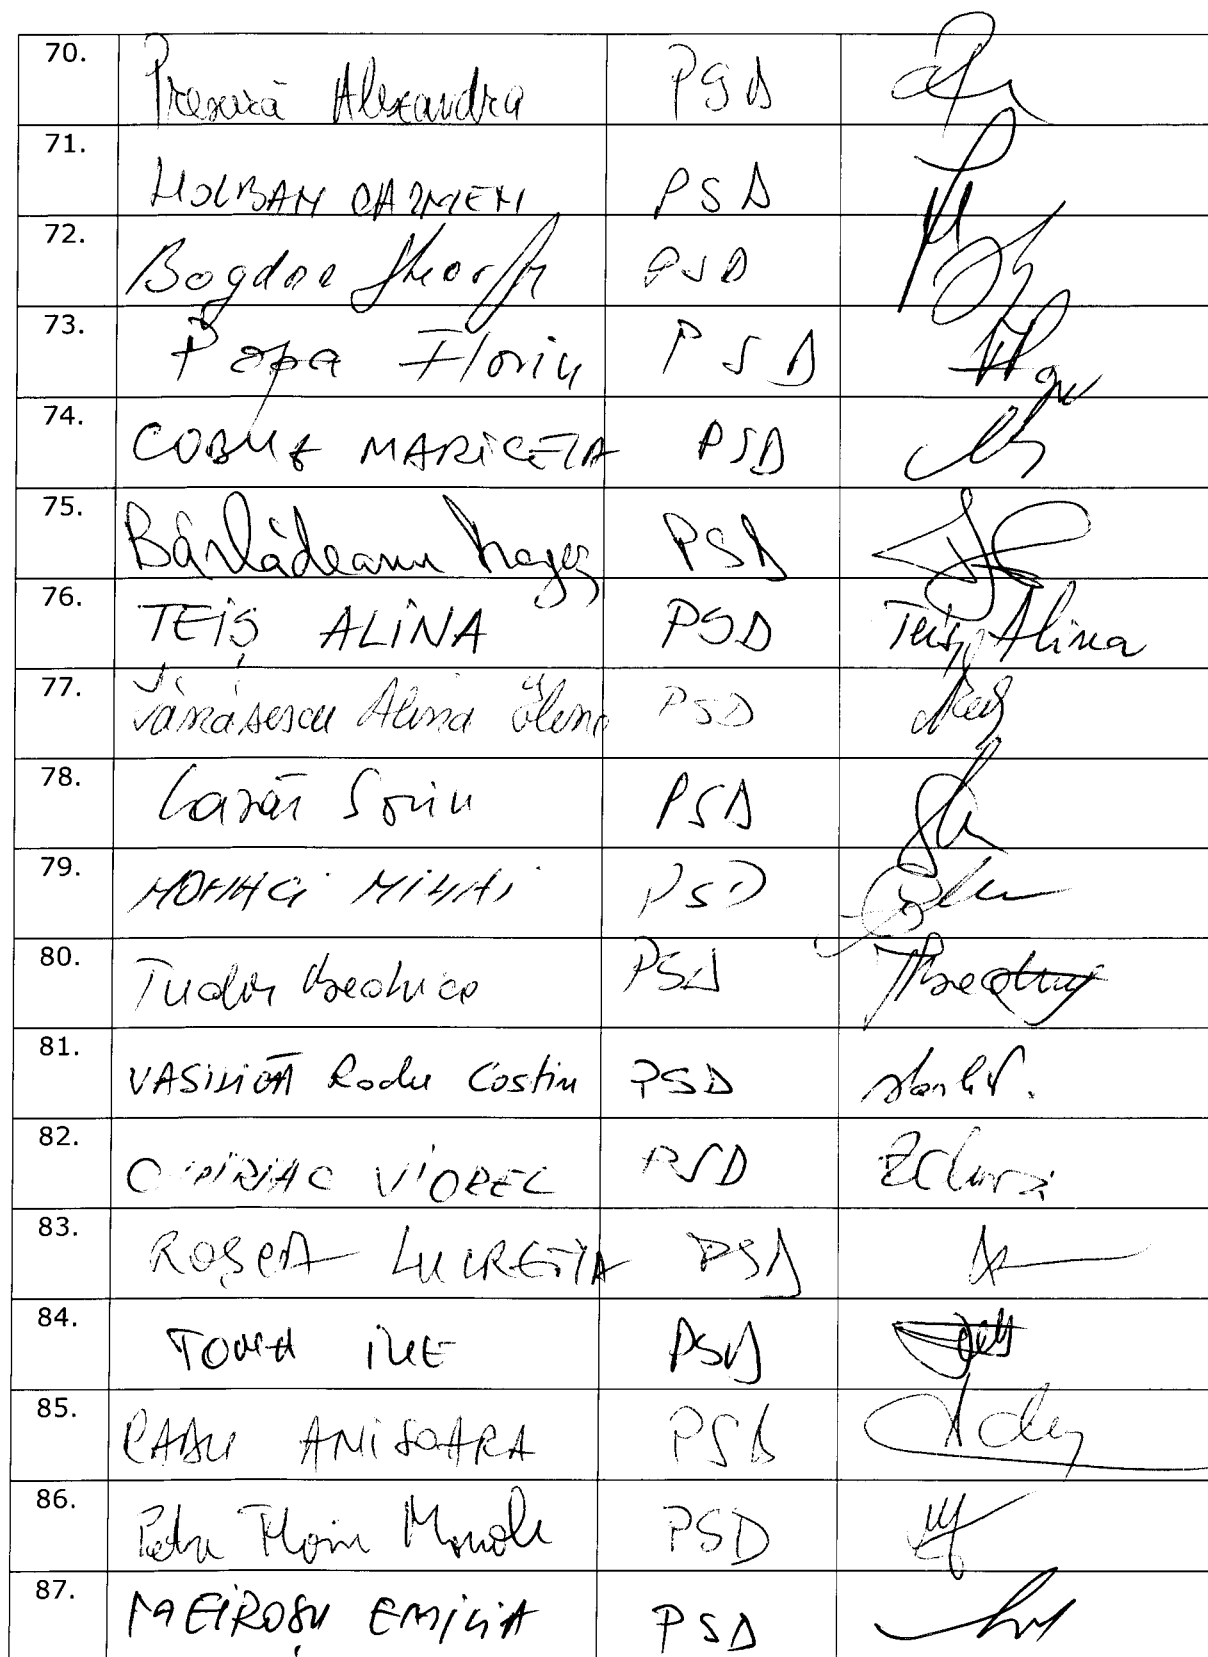 70. Presură Alexandra PSD
71. HOLBAN CARMEN PSD
72. Bogdan Gheorghe PSD
73. Popa Florin PSD
74. COBUZ MARICELA PSD
75. Bârlădeanu PSD
76. TEIȘ ALINA PSD Teiș Alina
77. Tănăsescu Alina Elena PSD
78. Lazăr Sorin PSD
79. MOHACI MIHAI PSD
80. Tudor PSD
81. VASILICĂ Radu Costin PSD
82. CHIRIAC VIOREL PSD
83. ROȘCA LUCREȚIA PSD
84. TOMA ILIE PSD
85. RADU ANIȘOARA PSD
86. Petre Florin Manole PSD
87. MEIROȘU EMILIA PSD